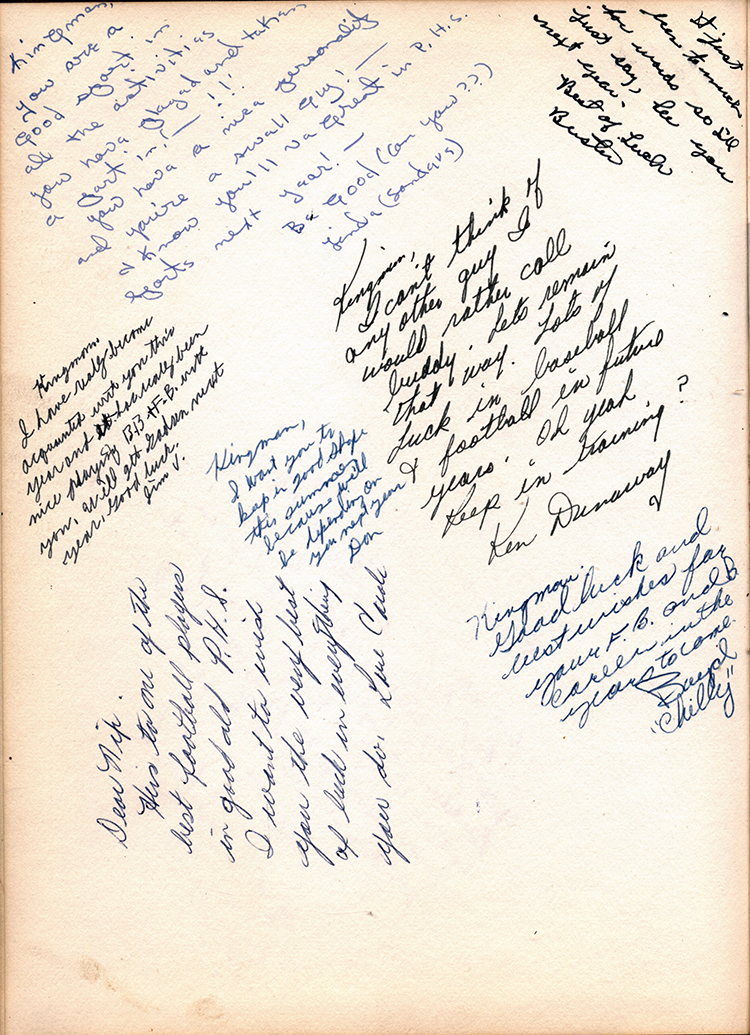 Kingman,
You are a
Good sport in
all the activities
you have played and taken
a part in, — !!
and you have a nice personality
and you're a swell Guy! —
I know you'll va Great in P.H.S.
sports next year! —
Be Good (Can you???)
Linda (Sanders)
It just
too much
for words so ill
just say, See you
next year.
Best of Luck
Buster
Kingman,
I can't think of
any other guy I
would rather call
buddy. Lets remain
that way. Lots of
Luck in baseball
& football in future
years. Oh yeah
Keep in training?
Ken Dunaway
Kingman
I have really become
acquanted with you this
year and has really been
nice playing B.B. & F-B. with
you, will get Gadsen next
year, Good luck.
Jim V.
Kingman,
I want you to
keep in good shape
this summer
because we'll
be depending on
you next year
Don
Kingman.
Good luck and
best wishes for
your F.B. and B
career in the
years to come.
"Chilly"
Dear Nip.
This to one of the
best football players
in good old P.H.S.
I want to wish
you the very best
of luck in everything
you do. Love